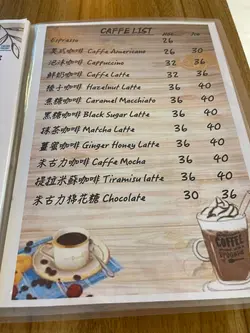 CAFFE LIST
Hot Ice
Espresso 26
美式咖啡 Caffe Americano 26 30
泡沫咖啡 Cappuccino 32 36
鮮奶咖啡 Caffe Latte 32 36
榛子咖啡 Hazelnut Latte 36 40
焦糖咖啡 Caramel Macchiato 36 40
黑糖咖啡 Black Sugar Latte 36 40
抹茶咖啡 Matcha Latte 36 40
薑蜜咖啡 Ginger Honey Latte 36 40
朱古力咖啡 Caffe Mocha 36 40
提拉米蘇咖啡 Tiramisu Latte 36 40
朱古力棉花糖 Chocolate 30 36
COFFEE